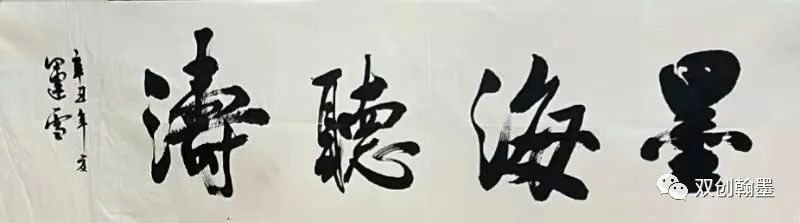 墨海聽濤
辛丑年夏
墨雪
双创翰墨